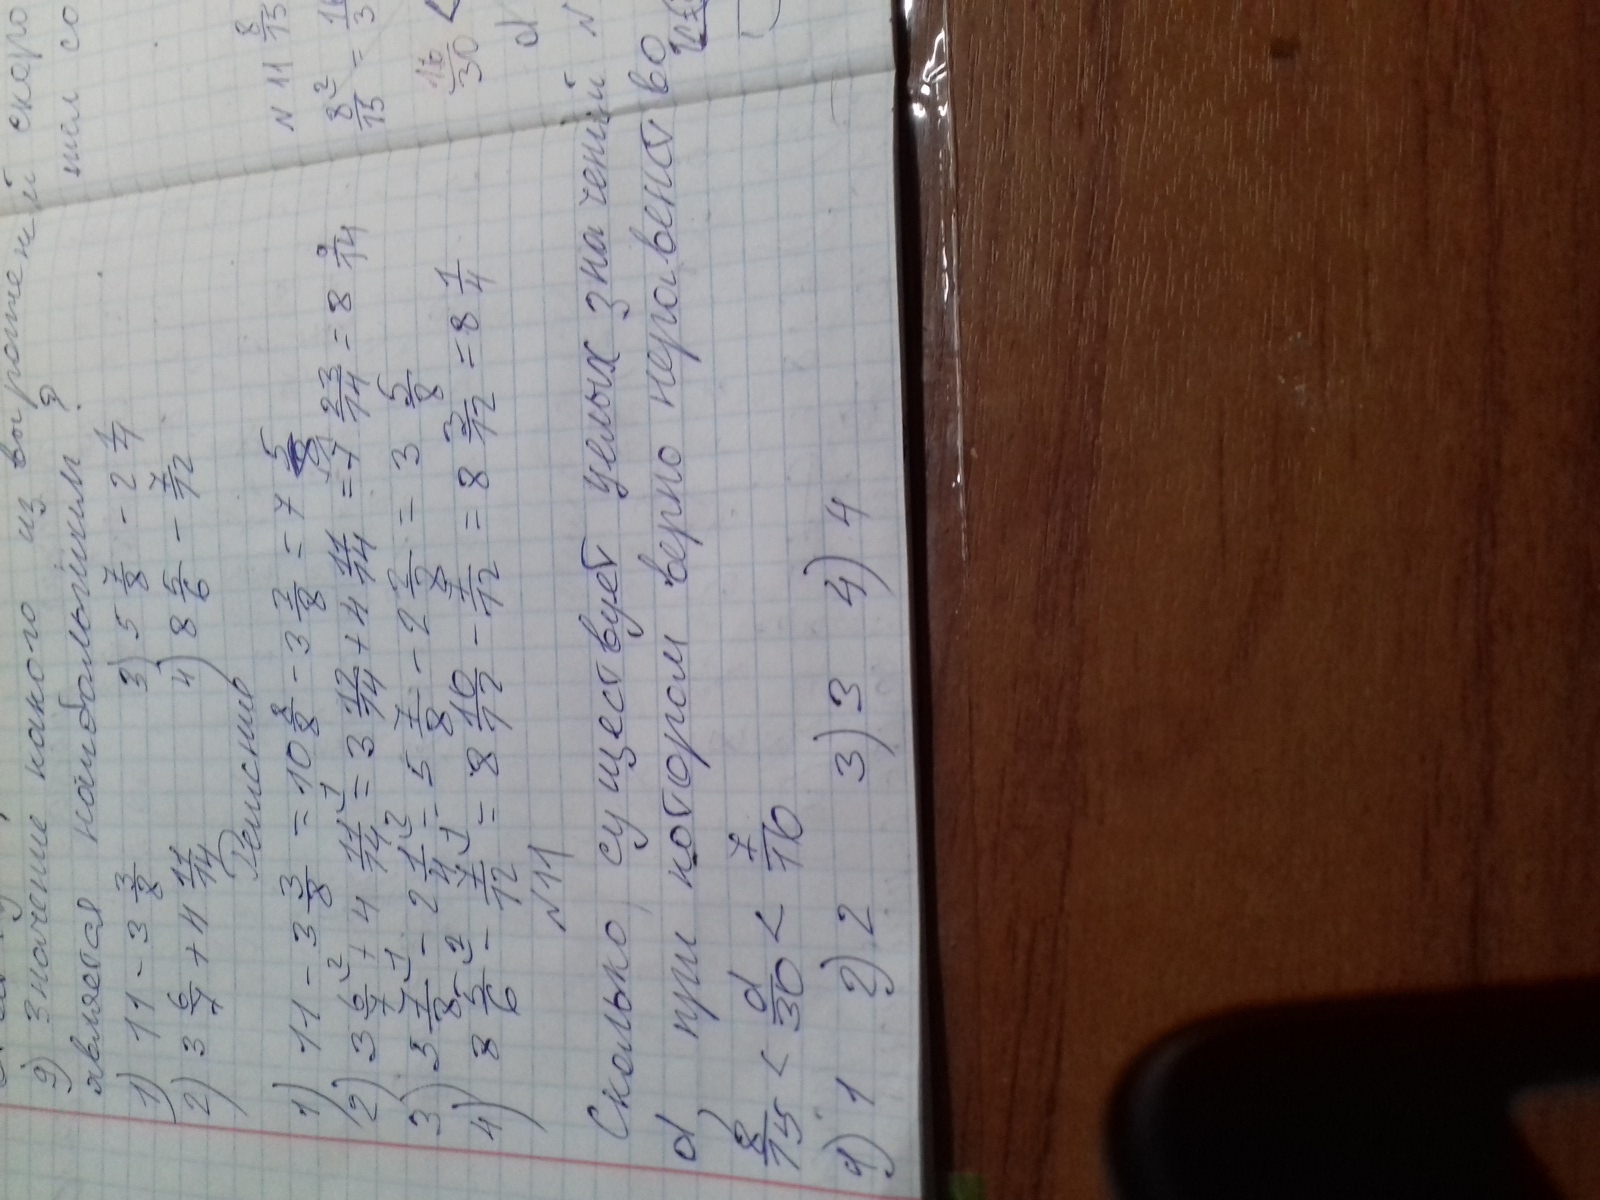 9) значение какого из выражений скоро
является наибольшим?
1) 11 - 3 3/8 3) 5 7/8 - 2 1/4
2) 3 6/7 + 4 11/14 4) 8 5/6 - 7/12
Решение
1) 11 - 3 3/8 = 10 8/8 - 3 3/8 = 7 5/8
2) 3 6/7 + 4 11/14 = 3 12/14 + 4 11/14 = 7 23/14 = 8 9/14
3) 5 7/8 - 2 1/4 = 5 7/8 - 2 2/8 = 3 5/8
4) 8 5/6 - 7/12 = 8 10/12 - 7/12 = 8 3/12 = 8 1/4
N11
Сколько существует целых значений
d при котором верно неравенство
8/15 < d/30 < 7/10
1) 1 2) 2 3) 3 4) 4
чисел со
N 11 8/15
8/15 2 =
16/30 <
d